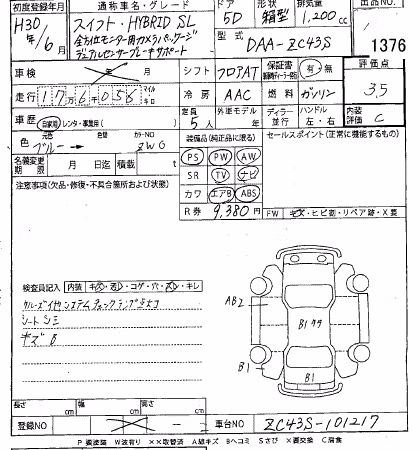 初度登録年月 通称車名・グレード ドア 形状 排気量 出品NO
H30年/6月 スイフト・HYBRID SL 5D 箱型 1,200cc
全方位モニター用カメラパッケージ
デュアルセンサーブレーキサポート 型式 DAA-ZC43S 1376
車検 年 月 シフト フロアAT 保証書 有・無 評価点
走行 176056 マイル キロ 冷房 AAC 燃料 ガソリン 3.5
車歴 自家用・レンタ・事業用( ) 定員 5人 外車モデル 年 ディーラー 並行 ハンドル 左・右 内装評価 C
色 元色 ブルー→ カラーNO ZWG 装備品(純正品に限る) セールスポイント(正常に機能するもの)
名義変更期限 月 日迄 積載 t PS PW AW
注意事項(欠品・修復・不具合箇所および状態) SR TV ナビ
カワ エアB ABS
R券 9,380円
FW キズ・ヒビ割・リペア跡・X要
検査員記入 内装 キズ・汚レ・コゲ・穴・スレ・キレ
AB2
シートシミ
キズ B
B1 ウラ
B1
B1
長さ cm 幅 cm 高さ cm
登録NO 車台NO ZC43S-101217
P 要塗装 W波有り ××取替済 A線キズ Bヘコミ Sさび ×要交換 C腐食